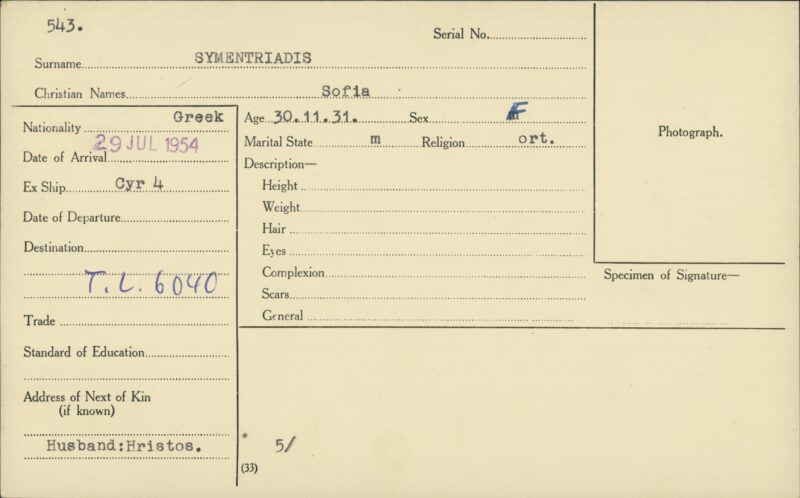 543.
Serial No.
Surname SYMENTRIADIS
Christian Names Sofia
Nationality Greek
Date of Arrival 29 JUL 1954
Ex Ship Cyr 4
Date of Departure
Destination
T. L. 6040
Trade
Standard of Education
Address of Next of Kin
(if known)
Husband:Hristos.
Age 30.11.31. Sex F
Marital State m Religion ort.
Description—
Height
Weight
Hair
Eyes
Complexion
Scars
General
5/
(33)
Photograph.
Specimen of Signature—